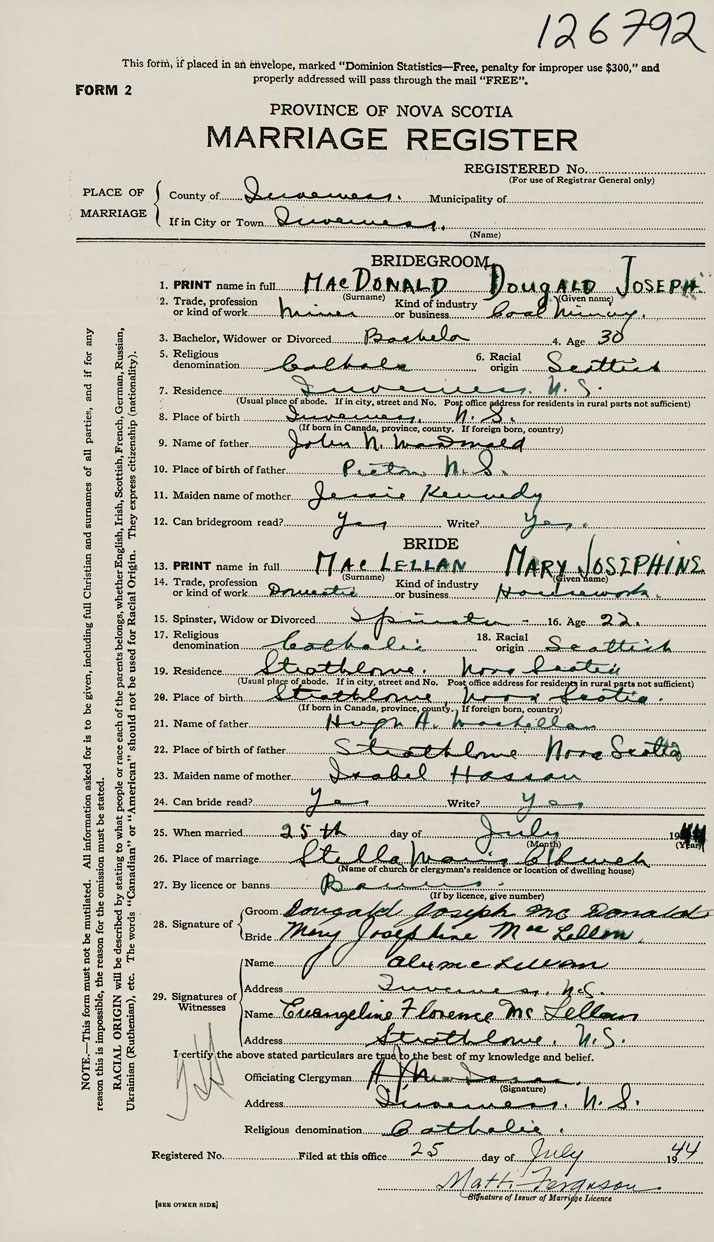 126792
This form, if placed in an envelope, marked "Dominion Statistics—Free, penalty for improper use $300," and
properly addressed will pass through the mail "FREE".
FORM 2
PROVINCE OF NOVA SCOTIA
MARRIAGE REGISTER
REGISTERED No.
(For use of Registrar General only)
PLACE OF MARRIAGE
County of Inverness. Municipality of
If in City or Town Inverness.
(Name)
BRIDEGROOM
1. PRINT name in full MACDONALD DOUGALD JOSEPH
(Surname) (Given name)
2. Trade, profession or kind of work miner Kind of industry or business Coal Mining.
3. Bachelor, Widower or Divorced Bachelor 4. Age 30
5. Religious denomination Catholic 6. Racial origin Scottish
7. Residence Inverness. N.S.
(Usual place of abode. If in city, street and No. Post office address for residents in rural parts not sufficient)
8. Place of birth Inverness. N.S.
(If born in Canada, province, county. If foreign born, country)
9. Name of father John N. MacDonald
10. Place of birth of father Pictou N.S.
11. Maiden name of mother Jessie Kennedy
12. Can bridegroom read? Yes Write? Yes.
BRIDE
13. PRINT name in full MACLELLAN MARY JOSEPHINE
(Surname) (Given name)
14. Trade, profession or kind of work Domestic Kind of industry or business Housework.
15. Spinster, Widow or Divorced Spinster - 16. Age 22.
17. Religious denomination Catholic 18. Racial origin Scottish
19. Residence Strathlorne. Nova Scotia
(Usual place of abode. If in city, street and No. Post office address for residents in rural parts not sufficient)
20. Place of birth Strathlorne, Nova Scotia.
(If born in Canada, province, county. If foreign born, country)
21. Name of father Hugh A. MacLellan
22. Place of birth of father Strathlorne Nova Scotia
23. Maiden name of mother Isabel Hassan
24. Can bride read? Yes Write? Yes
25. When married 25th day of July 1944
(Month) (Year)
26. Place of marriage Stella Maris Church
(Name of church or clergyman's residence or location of dwelling house)
27. By licence or banns Banns.
(If by licence, give number)
28. Signature of
Groom Dougald Joseph Mc Donald
Bride Mary Josephine MacLellan.
29. Signatures of Witnesses
Name McLellan
Address Inverness, N.S.
Name Evangeline Florence McLellan
Address Strathlorne, N.S.
I certify the above stated particulars are true to the best of my knowledge and belief.
Officiating Clergyman
(Signature)
Address Inverness, N.S.
Religious denomination Catholic.
Registered No. Filed at this office 25 day of July 1944
Matt. Ferguson
Signature of Issuer of Marriage Licence
[SEE OTHER SIDE]
NOTE.—This form must not be mutilated. All information asked for is to be given, including full Christian and surnames of all parties, and if for any
reason this is impossible, the reason for the omission must be stated.
RACIAL ORIGIN will be described by stating to what people or race each of the parents belongs, whether English, Irish, Scottish, French, German, Russian,
Ukrainian (Ruthenian), etc. The words "Canadian" or "American" should not be used for Racial Origin. They express citizenship (nationality).